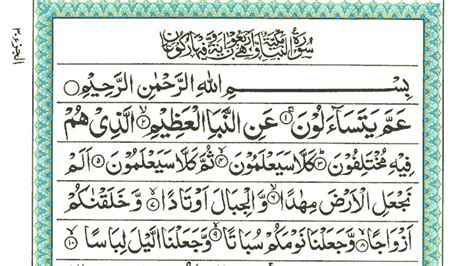 سُوْرَةُ النَّبَاِ مَكِّيَّةٌ وَّهِيَ اَرْبَعُوْنَ اٰيَةً وَّفِيْهَا رُكُوْعَانِ
بِسْمِ اللهِ الرَّحْمٰنِ الرَّحِيْمِ
عَمَّ يَتَسَآءَلُوْنَ ۝١ عَنِ النَّبَاِ الْعَظِيْمِ ۝٢ الَّذِيْ هُمْ
فِيْهِ مُخْتَلِفُوْنَ ۝٣ كَلَّا سَيَعْلَمُوْنَ ۝٤ ثُمَّ كَلَّا سَيَعْلَمُوْنَ ۝٥ اَلَمْ
نَجْعَلِ الْاَرْضَ مِهٰدًا ۝٦ وَّالْجِبَالَ اَوْتَادًا ۝٧ وَّخَلَقْنٰكُمْ
اَزْوَاجًا ۝٨ وَّجَعَلْنَا نَوْمَكُمْ سُبَاتًا ۝٩ وَّجَعَلْنَا الَّيْلَ لِبَاسًا ۝١٠
الجزء ٣٠